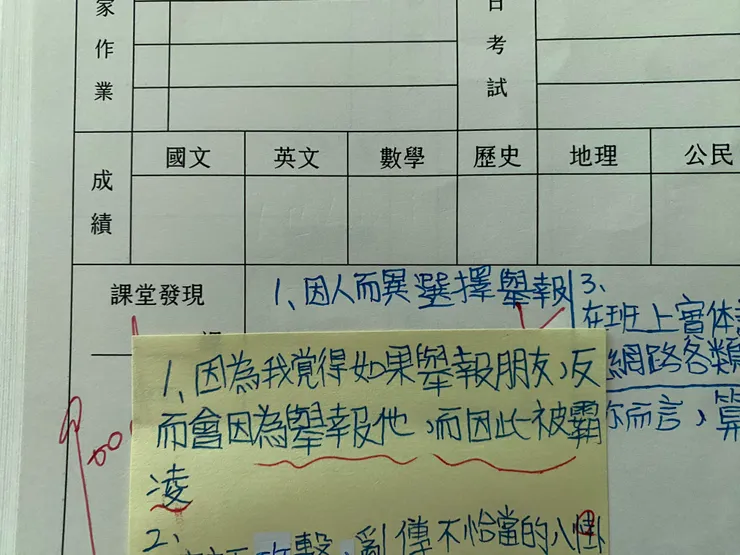 家作業
日考試
成績
國文 英文 數學 歷史 地理 公民
課堂發現
1、因人而異選擇舉報
3、
在班上實体
網路各類
你而言，算
1、因為我覺得如果舉報朋友，反
而會因為舉報他，而因此被霸
凌
2、
攻擊，亂傳不恰當的八卦